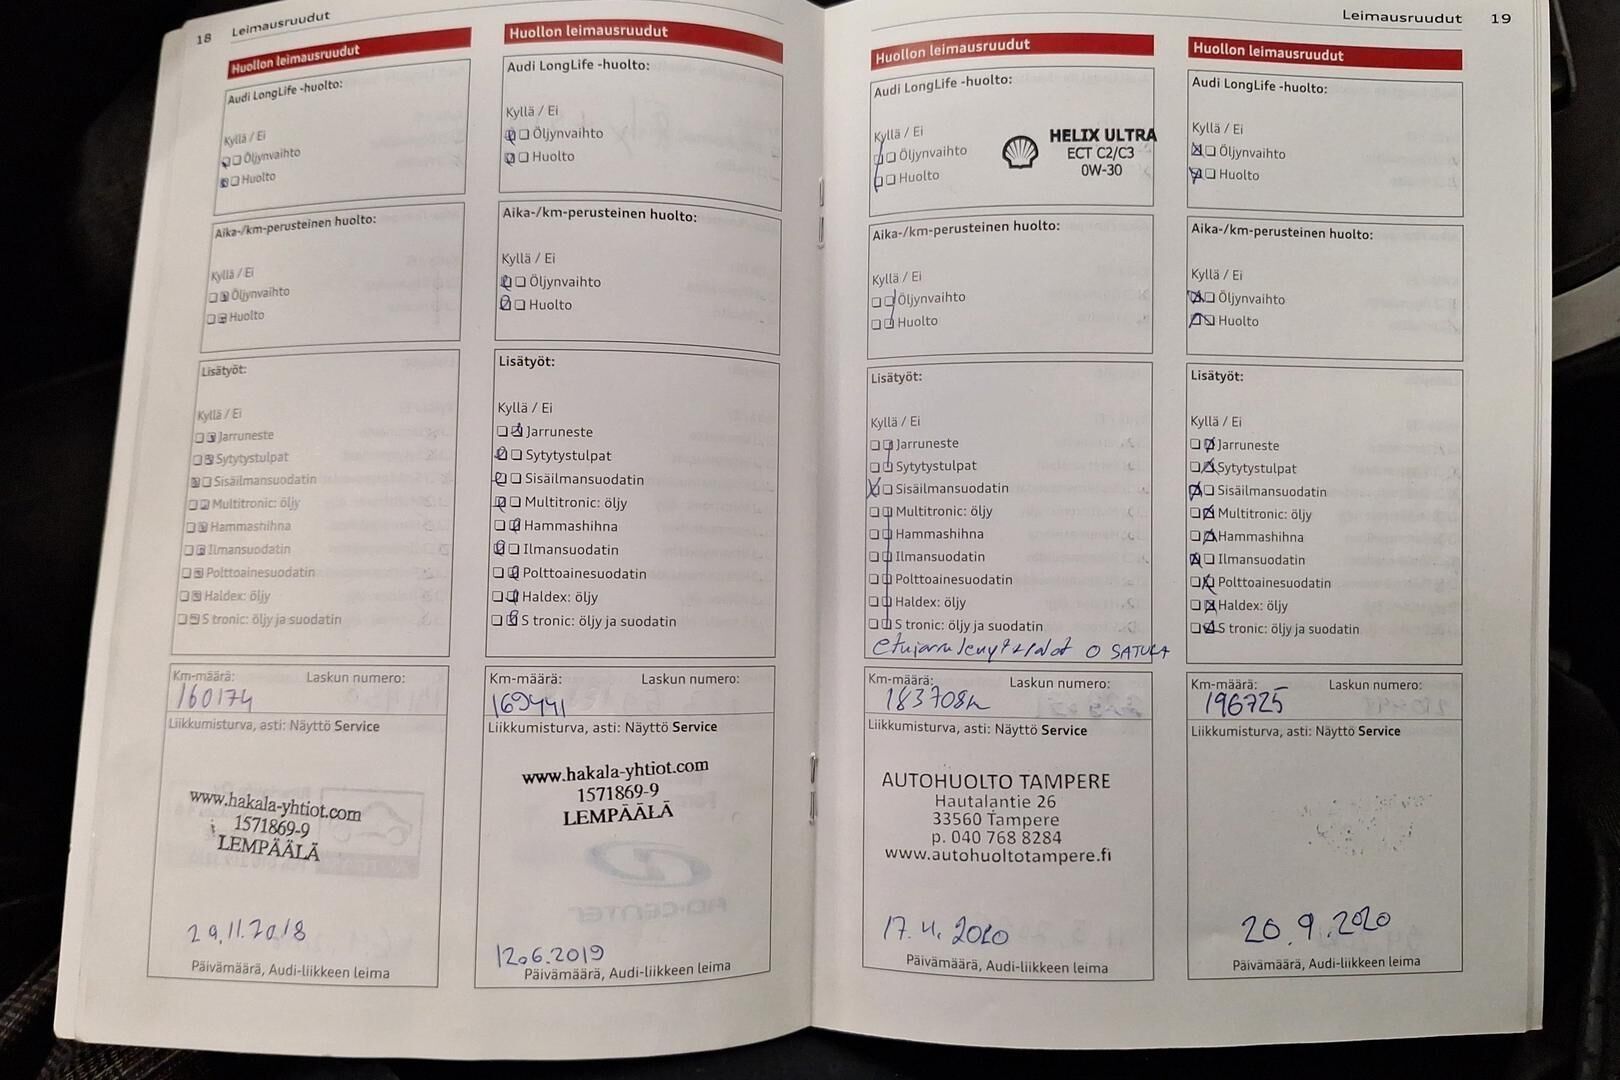 18 Leimausruudut
Huollon leimausruudut
Audi LongLife -huolto:
Kyllä / Ei
Öljynvaihto
Huolto
Aika-/km-perusteinen huolto:
Kyllä / Ei
Öljynvaihto
Huolto
Lisätyöt:
Kyllä / Ei
Jarruneste
Sytytystulpat
Sisäilmansuodatin
Multitronic: öljy
Hammashihna
Ilmansuodatin
Polttoainesuodatin
Haldex: öljy
S tronic: öljy ja suodatin
Km-määrä: Laskun numero:
160174
Liikkumisturva, asti: Näyttö Service
www.hakala-yhtiot.com
1571869-9
LEMPÄÄLÄ
29.11.2018
Päivämäärä, Audi-liikkeen leima
Huollon leimausruudut
Audi LongLife -huolto:
Kyllä / Ei
Öljynvaihto
Huolto
Aika-/km-perusteinen huolto:
Kyllä / Ei
Öljynvaihto
Huolto
Lisätyöt:
Kyllä / Ei
Jarruneste
Sytytystulpat
Sisäilmansuodatin
Multitronic: öljy
Hammashihna
Ilmansuodatin
Polttoainesuodatin
Haldex: öljy
S tronic: öljy ja suodatin
Km-määrä: Laskun numero:
169441
Liikkumisturva, asti: Näyttö Service
www.hakala-yhtiot.com
1571869-9
LEMPÄÄLÄ
12.6.2019
Päivämäärä, Audi-liikkeen leima
Leimausruudut 19
Huollon leimausruudut
Audi LongLife -huolto:
Kyllä / Ei
Öljynvaihto
Huolto
HELIX ULTRA
ECT C2/C3
0W-30
Aika-/km-perusteinen huolto:
Kyllä / Ei
Öljynvaihto
Huolto
Lisätyöt:
Kyllä / Ei
Jarruneste
Sytytystulpat
Sisäilmansuodatin
Multitronic: öljy
Hammashihna
Ilmansuodatin
Polttoainesuodatin
Haldex: öljy
S tronic: öljy ja suodatin
Km-määrä: Laskun numero:
183708
Liikkumisturva, asti: Näyttö Service
AUTOHUOLTO TAMPERE
Hautalantie 26
33560 Tampere
p. 040 768 8284
www.autohuoltotampere.fi
17.4.2020
Päivämäärä, Audi-liikkeen leima
Huollon leimausruudut
Audi LongLife -huolto:
Kyllä / Ei
Öljynvaihto
Huolto
Aika-/km-perusteinen huolto:
Kyllä / Ei
Öljynvaihto
Huolto
Lisätyöt:
Kyllä / Ei
Jarruneste
Sytytystulpat
Sisäilmansuodatin
Multitronic: öljy
Hammashihna
Ilmansuodatin
Polttoainesuodatin
Haldex: öljy
S tronic: öljy ja suodatin
Km-määrä: Laskun numero:
196725
Liikkumisturva, asti: Näyttö Service
20.9.2020
Päivämäärä, Audi-liikkeen leima